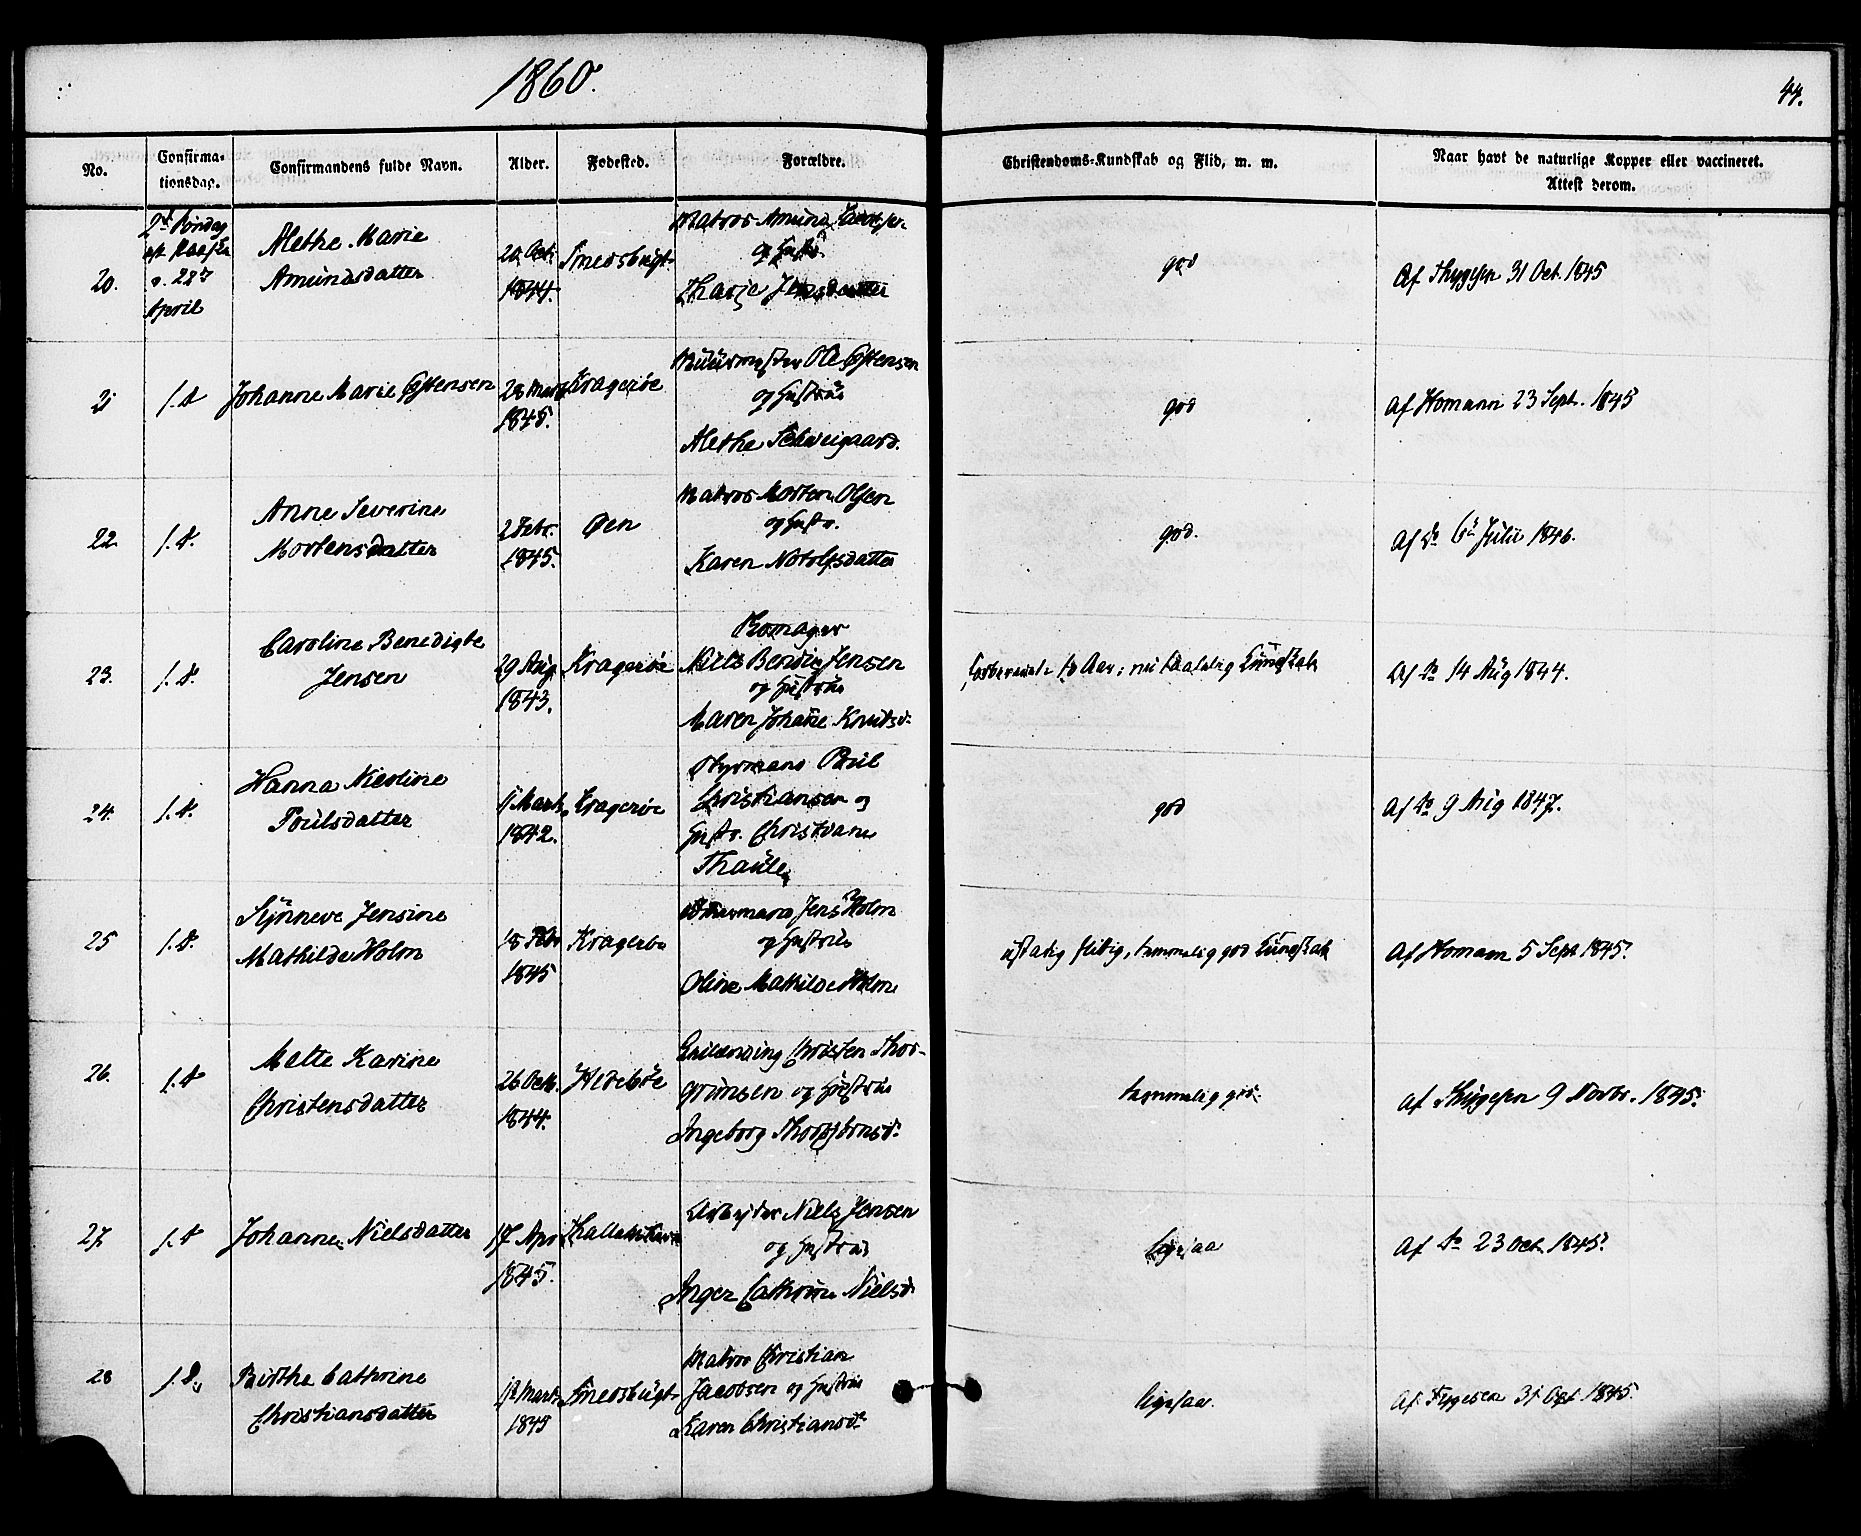 1860.
44.
No.
Confirma-
tionsdag.
Confirmandens fulde Navn.
Alder.
Fødested.
Forældre.
Christendoms-Kundskab og Flid, m. m.
Naar havt de naturlige Kopper eller vaccineret.
Attest derom.
20.
2d Søndag
April
Alethe Marie
Amundsdatter
20 Oct.
1844.
Smedsbugt
Matros Amund
og Hustr.
god
Af Thygesen 31 Oct. 1845
21
Johanne Marie Eystensen
23 Marts
1845.
Kragerøe
Muurmester Ole Eystensen
og Hustrue
Alethe Schweigaard.
god
Af Homann 23 Sept. 1845
22
Anne Severine
Mortensdatter
2 Febr.
1845.
Øen
Matros Morten Olsen
og Hustr.
Karen Notolfsdatter
god.
Af do 6 Julii 1846.
23.
Caroline Benedigte
Jensen
29 Aug.
1843.
Kragerøe
Niels Bendix Jensen
og Hustrue
Maren Johanne Knutsd.
to Aar; nu taalelig Kundskab
Af do 14 Aug 1844.
24.
Hanna Nicoline
Poulsdatter
Marts
1842.
Kragerøe
Styrmand Poul
Christiansen og
Hustr. Christiane
Thaule
god
Af do 9 Aug 1847.
25
Synneve Jensine
Mathilde Holm
18 Feb.
1845
Kragerøe
Jens Holm
og Hustrue
Oline Mathilde Holm
ustadig flittig, temmelig god Kundskab
Af Homann 5 Sept 1845.
26.
Mette Karine
Christensdatter
26 Octb.
1844.
Christen Thor-
grimsen og Hustrue
Ingeborg Thorbjørnsd.
temmelig god.
Af Thygesen 9 Novbr. 1845.
27.
Johanne Nielsdatter
17 Apr
1845.
Arbejder Niels Jensen
og Hustrue
Inger Cathrine Nielsd.
ligesaa
Af do 23 Oct. 1845.
28
Birthe Cathrine
Christiansdatter
Marts
1845
Smedsbugt
Matros Christian
Jacobsen og Hustrue
Karen Christiansd.
ligesaa.
Af Tygesen 31 Oct 1845.